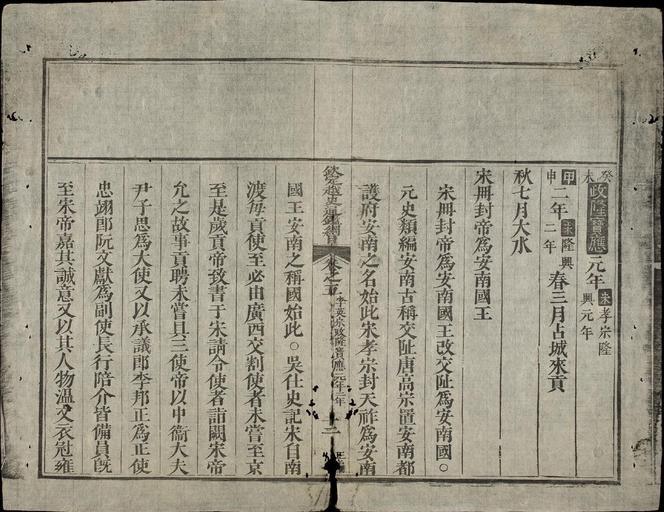 癸未政隆寶應元年宋孝宗隆興元年
甲申二年宋隆興二年春三月占城來貢
秋七月大水
宋冊封帝爲安南國王
宋冊封帝爲安南國王改交趾爲安南國○
元史類編安南古稱交趾唐高宗置安南都
護府安南之名始此宋孝宗封天祚爲安南
欽定越史通鑑綱目正編卷之五 李英宗政隆寶應元年二年 十三
國王安南之稱國始此○吳仕史記宋自南
渡每貢使至必由廣西交割使者未嘗至京
至是歲貢帝致書于宋請令使者詣闕宋帝
允之故事貢聘未嘗具三使帝以中衛大夫
尹子思爲大使又以承議郎李邦正爲正使
忠翊郎阮文獻爲副使長行陪介皆備員旣
至宋帝嘉其誠意又以其人物溫文衣冠雍